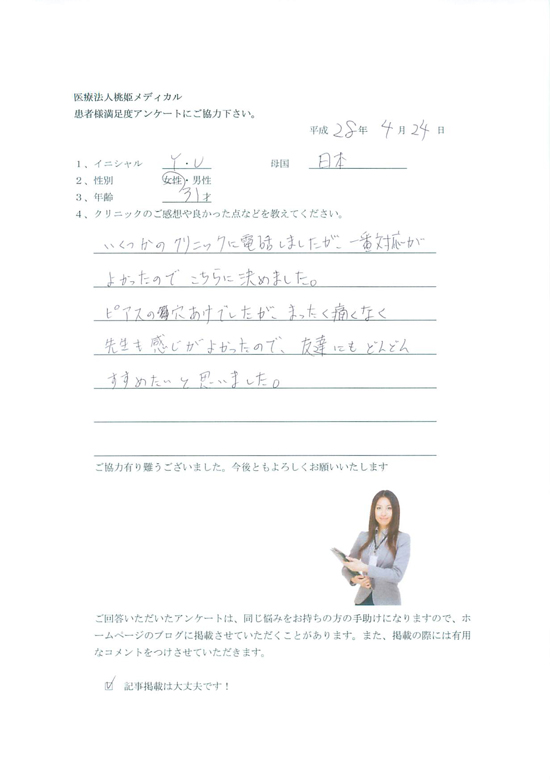 医療法人桃姫メディカル
患者様満足度アンケートにご協力下さい。
平成 28年 4月 24日
1、イニシャル Y・U 母国 日本
2、性別 女性・男性
3、年齢 31才
4、クリニックのご感想や良かった点などを教えてください。
いくつかのクリニックに電話しましたが、一番対応が
よかったので こちらに決めました。
ピアスの穴あけでしたが、まったく痛くなく
先生も感じがよかったので、友達にもどんどん
すすめたいと思いました。
ご協力有り難うございました。今後ともよろしくお願いいたします
ご回答いただいたアンケートは、同じ悩みをお持ちの方の手助けになりますので、ホ
ームページのブログに掲載させていただくことがあります。また、掲載の際には有用
なコメントをつけさせていただきます。
☑ 記事掲載は大丈夫です！